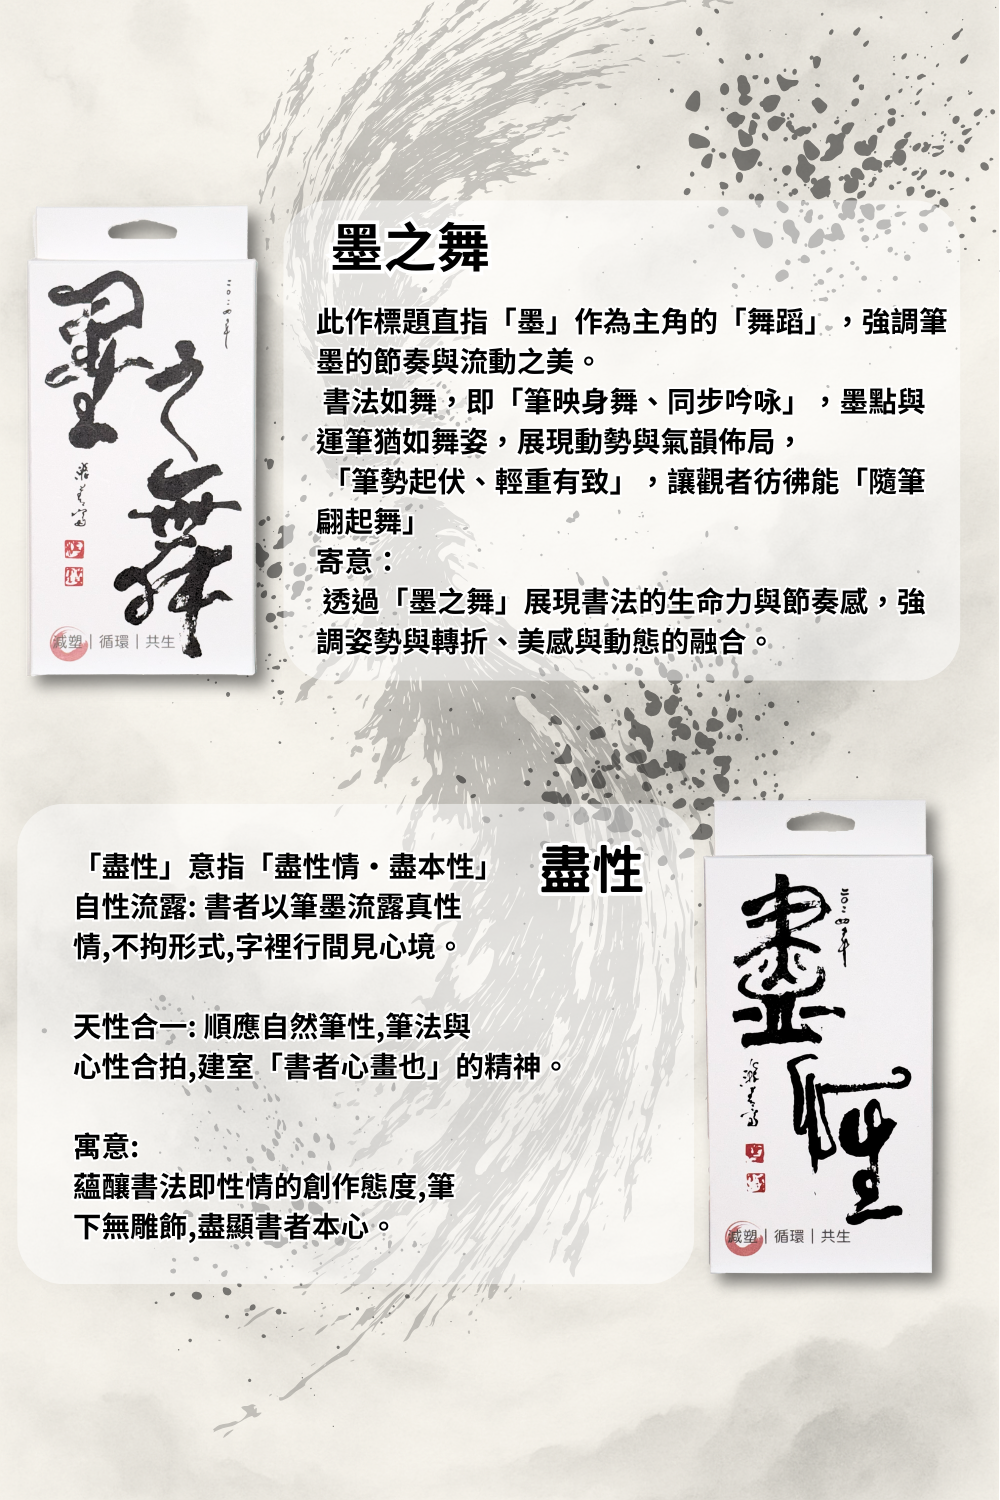 墨之舞
此作標題直指「墨」作為主角的「舞蹈」，強調筆
墨的節奏與流動之美。
書法如舞，即「筆映身舞、同步吟咏」，墨點與
運筆猶如舞姿，展現動勢與氣韻佈局，
「筆勢起伏、輕重有致」，讓觀者彷彿能「隨筆
翩起舞」
寄意：
透過「墨之舞」展現書法的生命力與節奏感，強
調姿勢與轉折、美感與動態的融合。
墨之舞
二〇二四年
減塑｜循環｜共生
盡性
「盡性」意指「盡性情・盡本性」
自性流露: 書者以筆墨流露真性
情,不拘形式,字裡行間見心境。
天性合一: 順應自然筆性,筆法與
心性合拍,建室「書者心畫也」的精神。
寓意:
蘊釀書法即性情的創作態度,筆
下無雕飾,盡顯書者本心。
盡性
二〇二四年
減塑｜循環｜共生